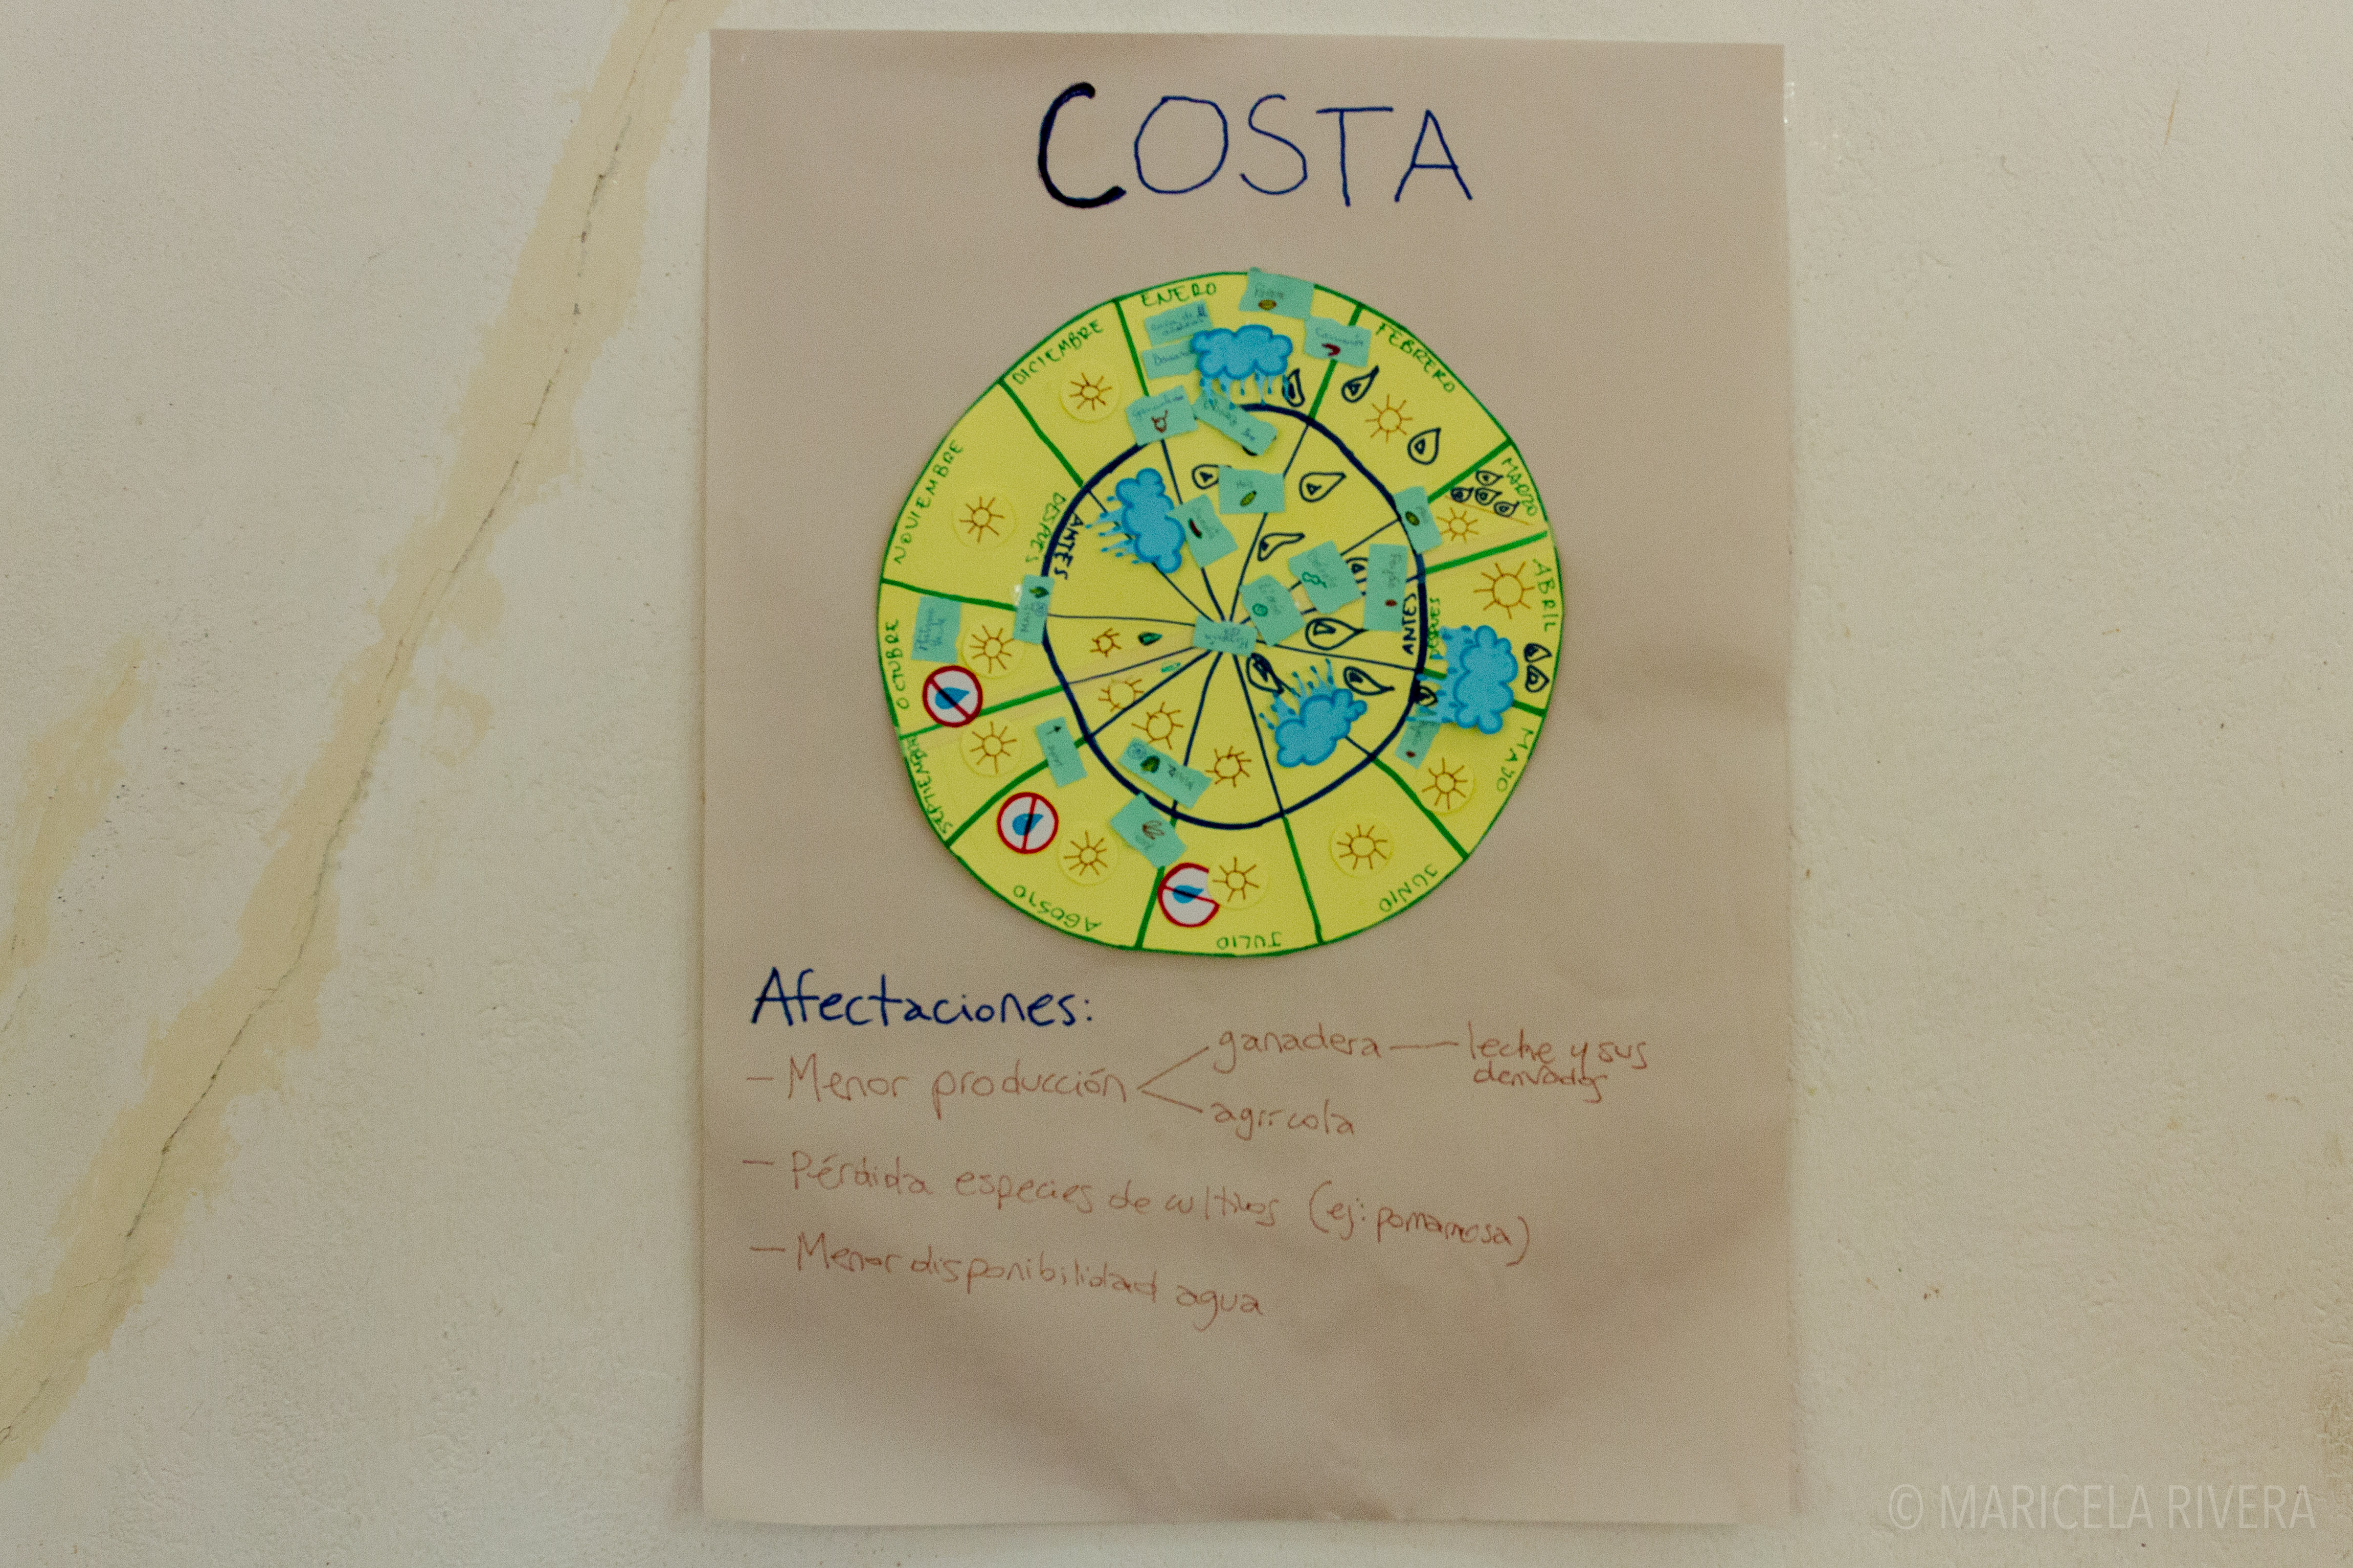 COSTA
ENERO
FEBRERO
MARZO
ABRIL
MAYO
JUNIO
JULIO
AGOSTO
SEPTIEMBRE
OCTUBRE
NOVIEMBRE
DICIEMBRE
DESPUES
ANTES
ANTES
DESPUES
Afectaciones:
- Menor producción ganadera — leche y sus
derivados
agrícola
- Pérdida especies de cultivos (ej: pomarrosa)
- Menor disponibilidad agua
© MARICELA RIVERA